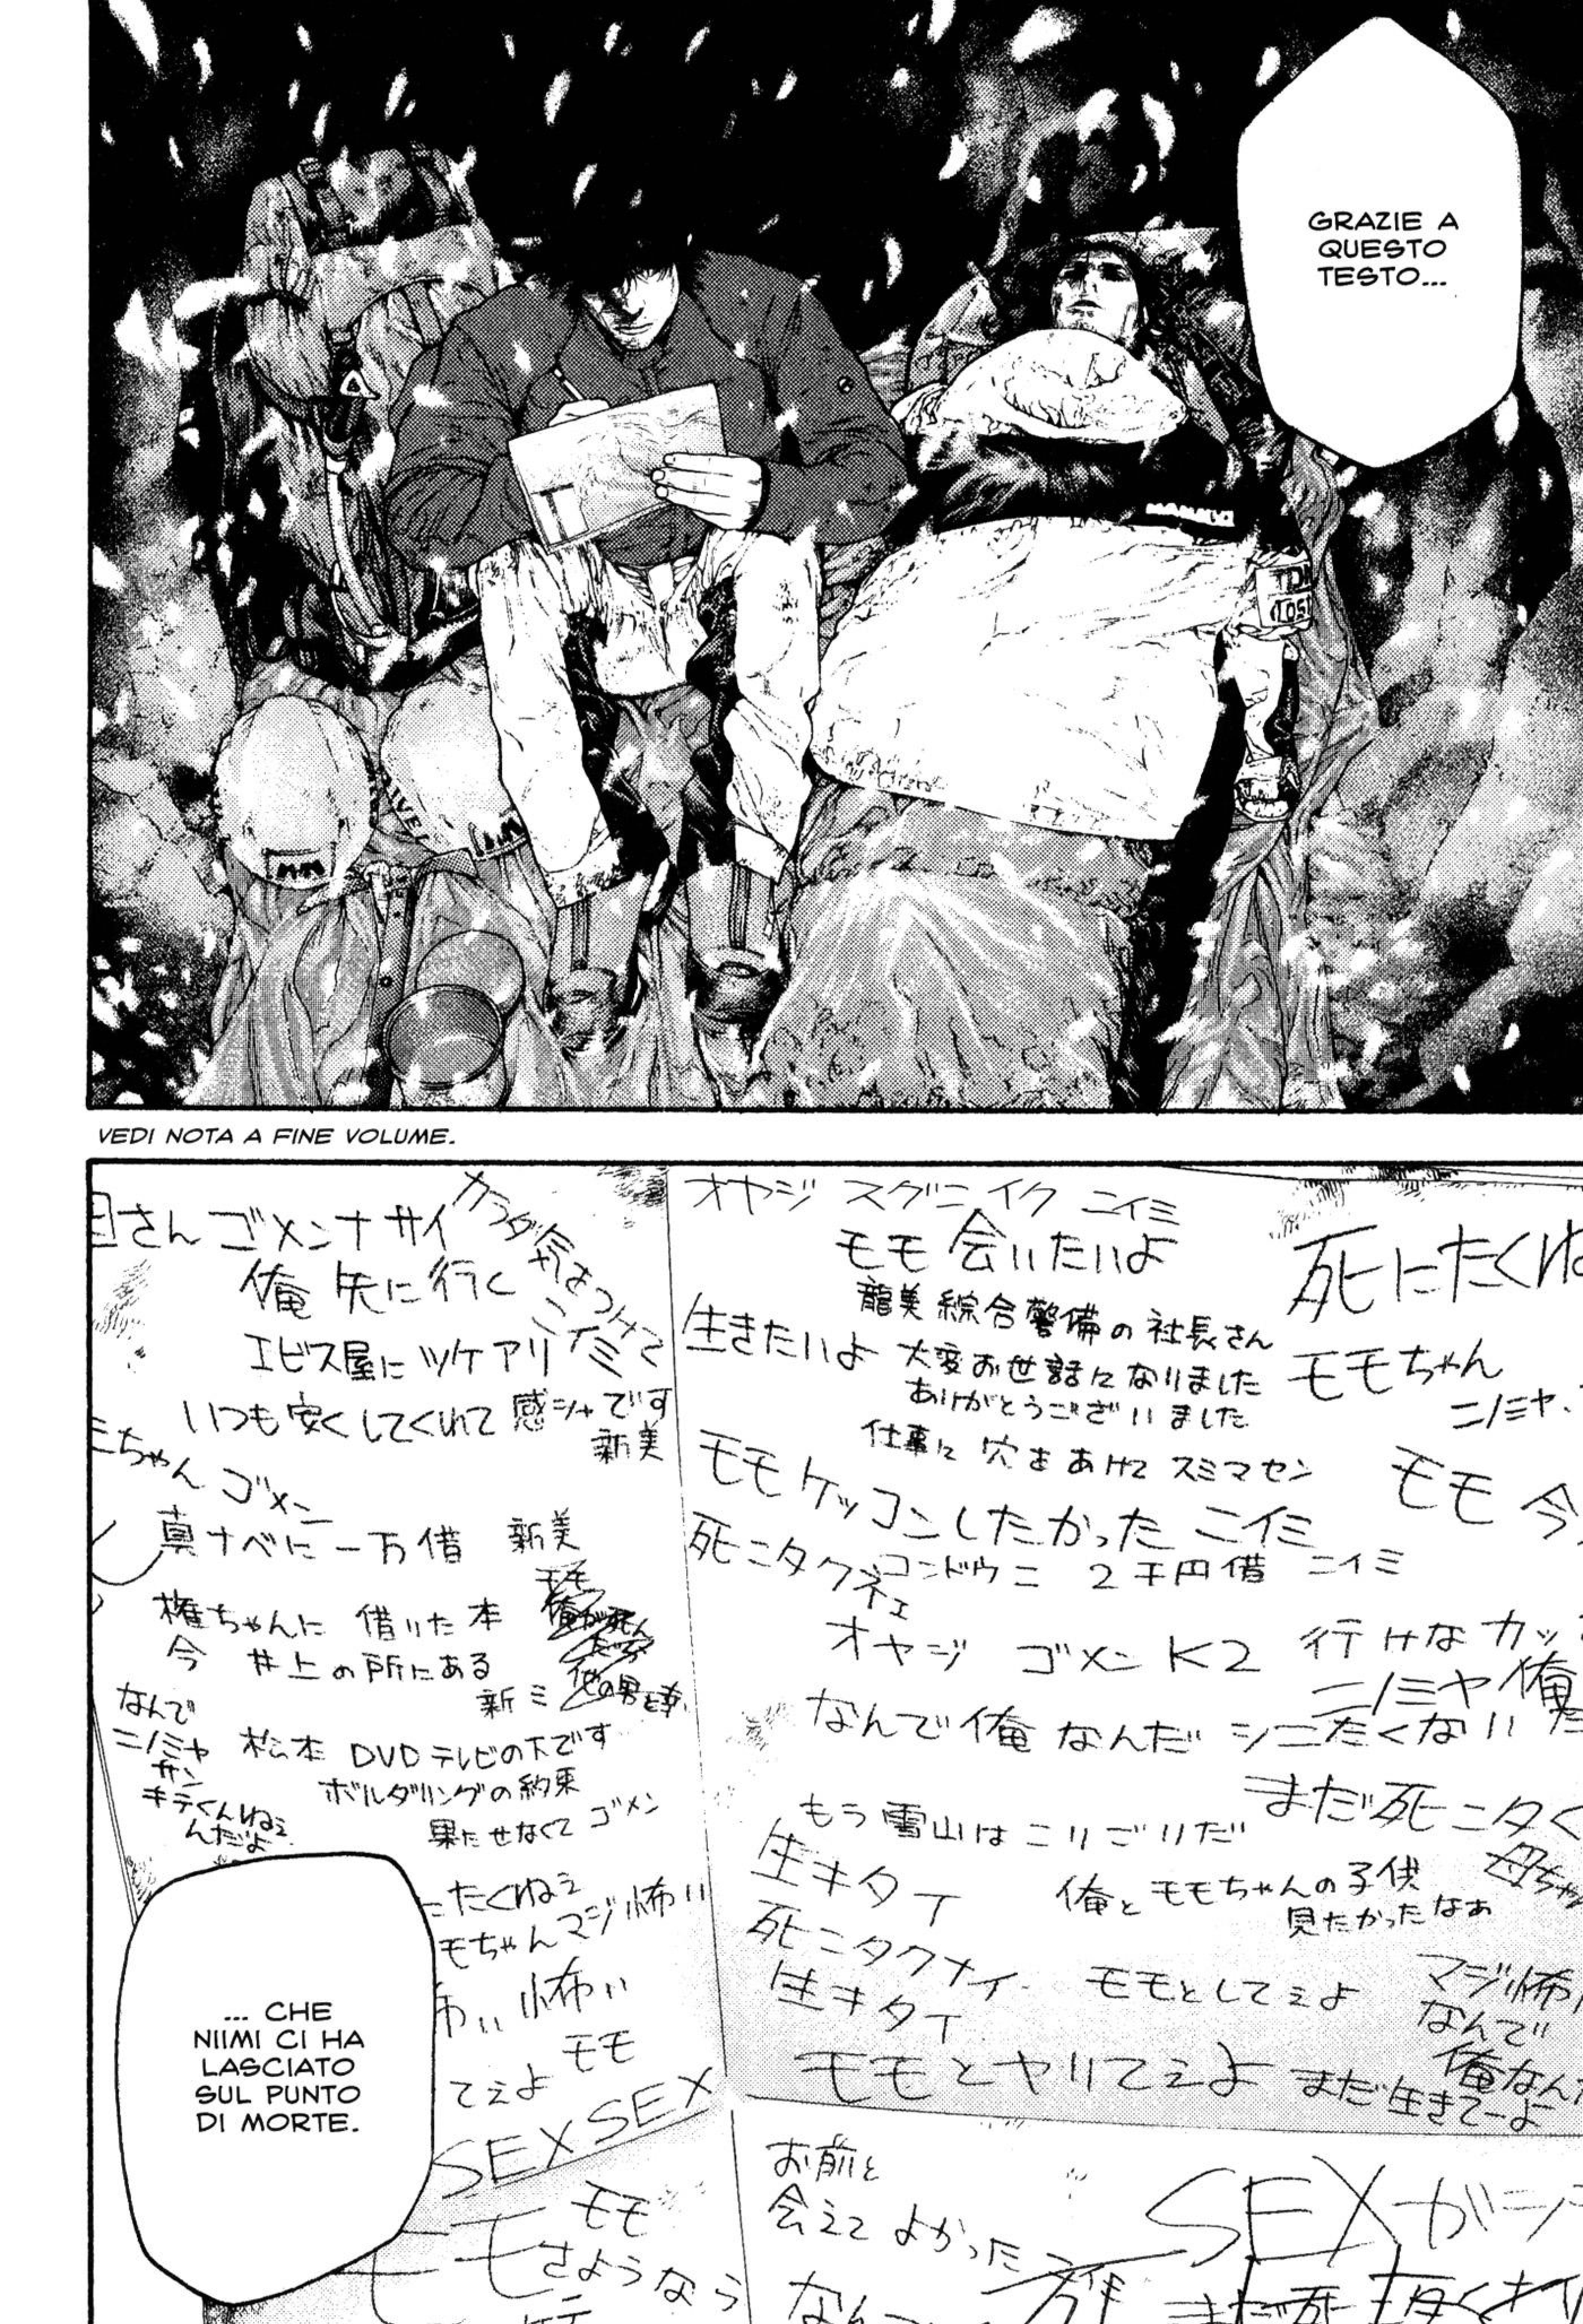 GRAZIE A
QUESTO
TESTO...
VEDI NOTA A FINE VOLUME.
オヤジ スグニイク ニイミ
モモ 会いたいよ
龍美綜合警備の社長さん
大変お世話になりました
ありがとうございました
仕事に穴をあけて スミマセン
生きたいよ
死にたくね
モモちゃん
ニノミヤ
モモ 今
モモ ケッコンしたかった ニイミ
死ニタクネェ
コンドウニ 2千円借 ニイミ
オヤジ ゴメン K2 行けなカッ
ニノミヤ 俺
なんで俺なんだ シニたくない
まだ死ニタく
もう雪山はこりごりだ
生キタイ
俺とモモちゃんの子供
見たかったなあ
母ちゃ
死ニタクナイ
生キタイ
モモとしてえよ
マジ怖
なんで
俺なん
モモとヤリてえよ
まだ生きてーよ
母さん ゴメンナサイ
カラダ気をつけて
ニイミ
俺 先に行く
エビス屋にツケアリ
いつも安くしてくれて 感シャです
新美
ミちゃん ゴメン
真ナベに一万借 新美
モモ
権ちゃんに 借りた本
今 井上の所にある
新ミ
なんで
ニノミヤ
サン
キテくんねえ
んだよ
松本 DVDテレビの下です
ボルダリングの約束
果たせなくて ゴメン
たくねえ
モちゃんマジ怖い
怖い
モモ
てえよ
SEX SEX
モモ
さようなら
お前と
会えて よかった
SEXがシ
... CHE
NIIMI CI HA
LASCIATO
SUL PUNTO
DI MORTE.